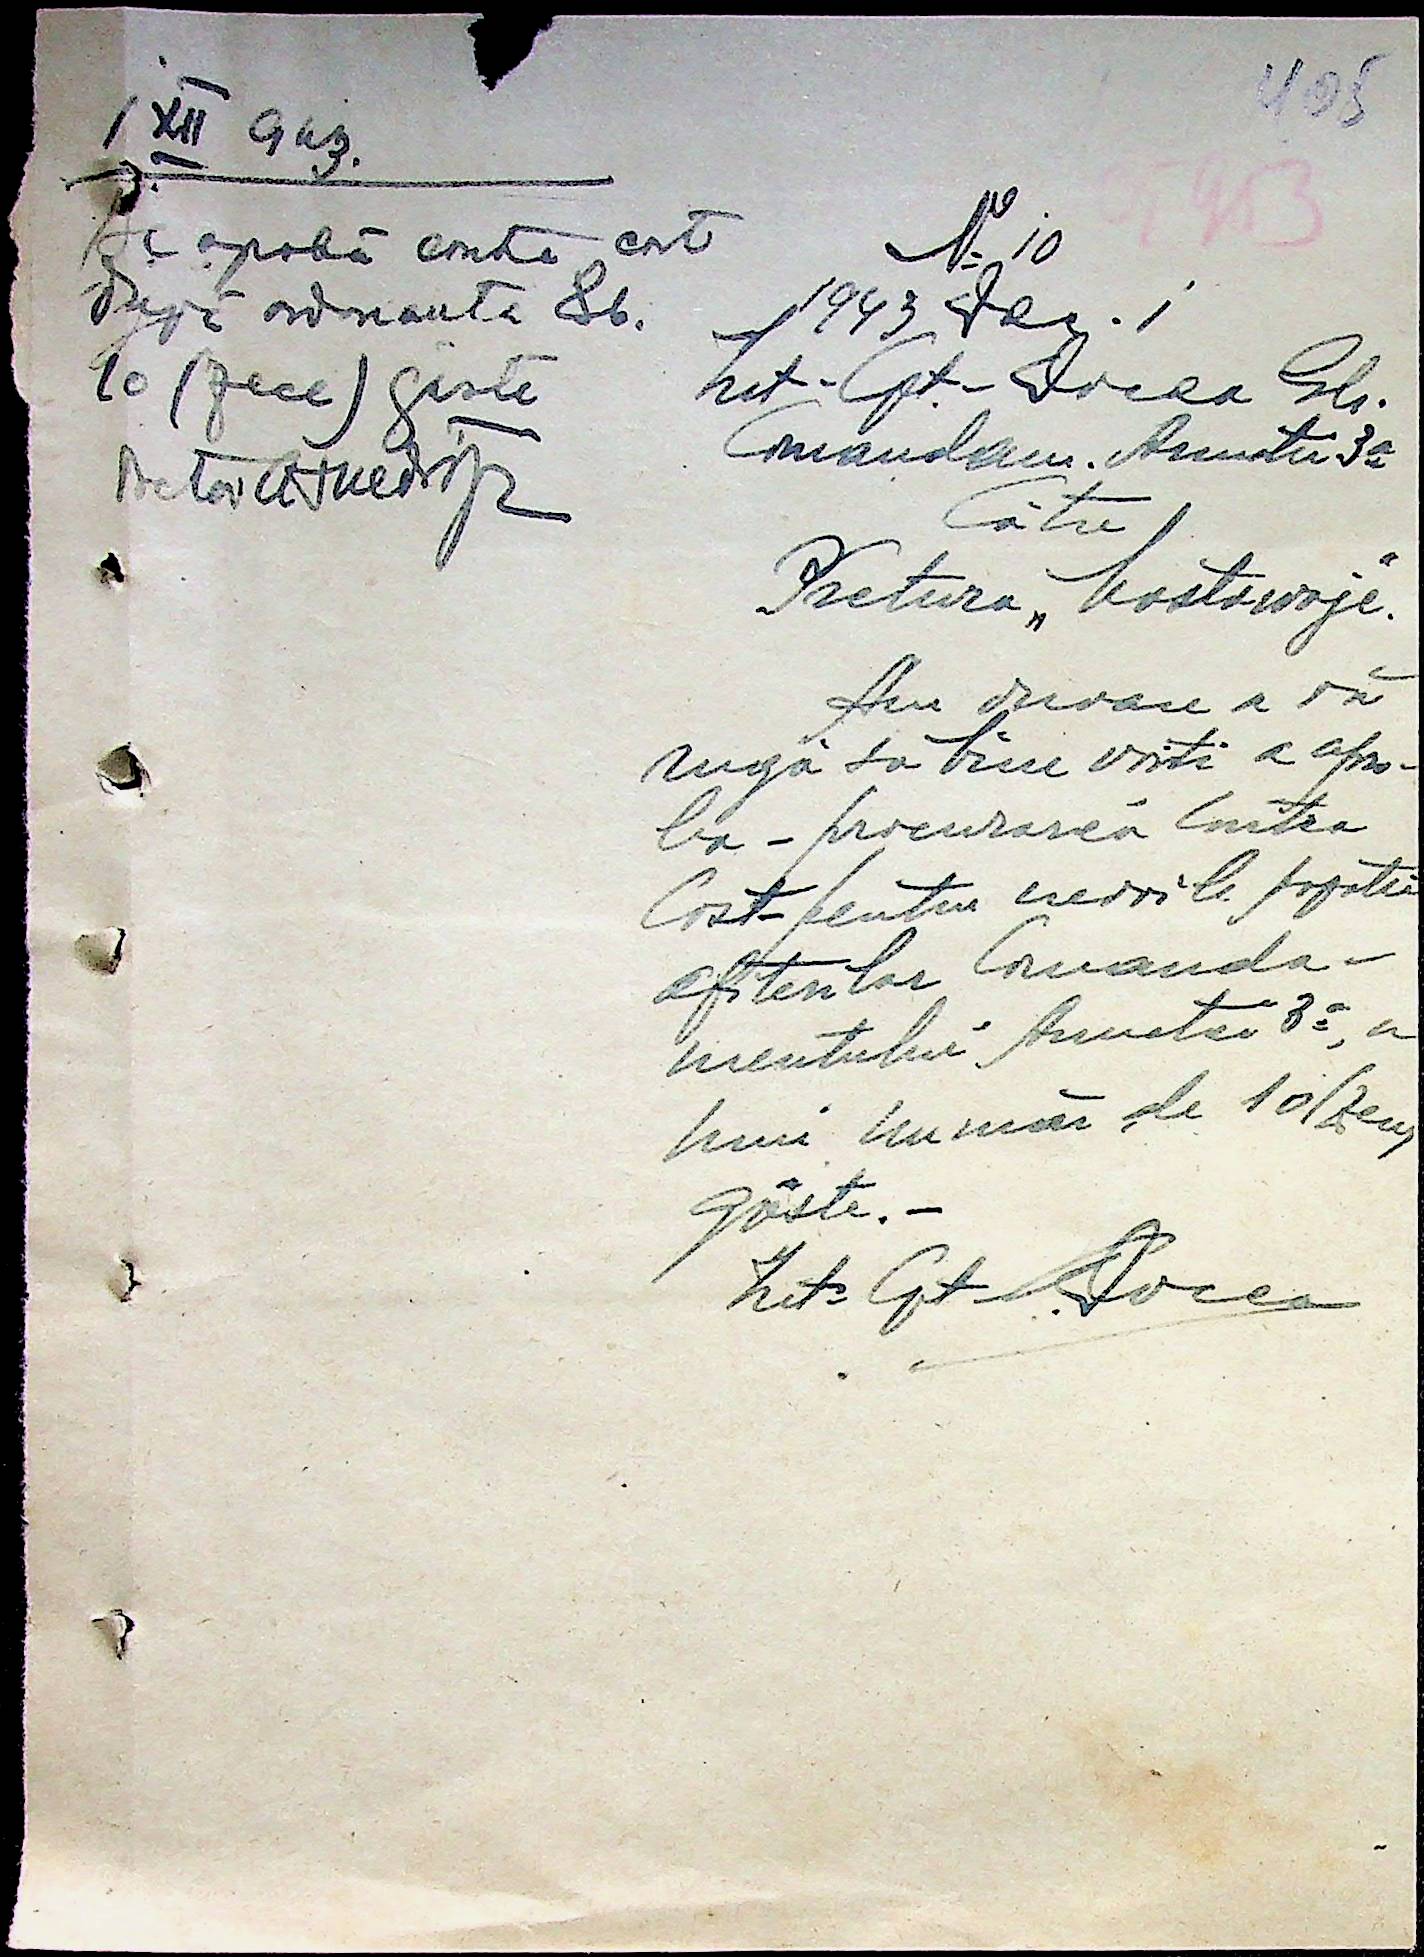 405
953
1 XII 943.
Se aprobă contra cost
după ordonanta 86.
10 (zece) gâste
Pretor
No 10
1943 Dec. 1
Lct-Cpt- Docea Gh.
Comandam. Armatei 3a
Către
Pretura „Kostowoje".
Am onoare a vă
rugă să bine voiti a apro-
ba - procurarea contra
Cost - pentru nevoile popotei
ofiterilor Comanda-
mentului Armatei 3a, a
unui număr de 10/zece/
gâste. -
Lct- Cpt- Docea